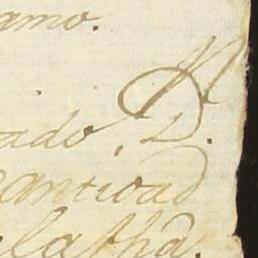 gmo.
ado, D.
cantidad
la thã.